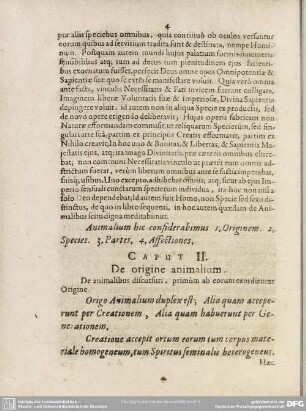 4
præ aliis speciebus omnibus, quia continuò ob oculos versantur
eorum quibus ad servitium tradita sunt & destinata, nempe Homi-
num. Postquam autem mundi hujus palatium
sensibilibus atq; tum ad decus tum plenitudinem ejus facienti-
bus exornatum fuisset, perfecit Deus omne opus Omnipotentiæ &
Sapientiæ suæ
ante facta, vinculis Necessitatis & Fati invicem fuerant colligata,
Imaginem liberæ Voluntatis suæ & imperiosæ, Divina Sapientia
depingere voluit, id autem non in aliqua Specie ex productis, sed
de novo opere exigendo deliberavit; Hujus operis fabricam non
Naturæ efformandam commisit, ut reliquarum Specierum, sed sin-
gulari curæ
Nihilo creavit, In hoc uno & Bonitas, & Libertas, & Sapientia Ma-
jestatis ejus, atq; ita imago Divinitatis præ cæteris omnibus eluce-
bat, non communi Necessitatis vinculo ut prætér eum omnia ad-
strictum fuerat, verùm liberum voluntate perfectus, omnibus fuit,
suisq; usibus. Uno excepto, aliisubebat omnia, atq; sicut ab ejus Im-
perio sensili concharum specierum individua, ita hoc non nisi a
solo Deo dependebat, Id autem fuit Homo, non Specie sed
di-
stinctus, de quo in libro sequenti, in hoc autem quædam de Anima-
libus scitu digna meditabimur.
Animalium hic considerabimus 1, Originem. 2,
Species. 3, Partes. 4, Affectiones.
CAPUT II.
De origine animalium.
De animalibus discursuri, primùm ab eorum exordiemur
Origine.
Origo Animalium duplex est; Alia quam accepe-
runt per Creationem, Alia quam habuerunt per Ge-
nerationem,
Creatione accepit ortum eorum tum corpus mate-
riale homogeneum, tum Spiritus seminalis heterogeneus.
Hæc